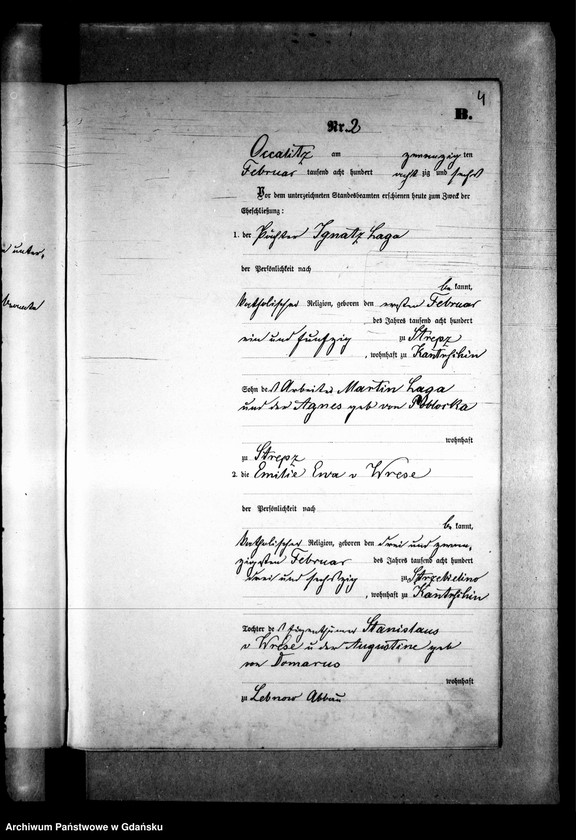 4
B.
Nr. 2
Occalitz am zwanzig ten
Februar tausend acht hundert acht zig und sechs
Vor dem unterzeichneten Standesbeamten erschienen heute zum Zweck der
Eheschließung:
1. der Pächter Ignatz Laga
der Persönlichkeit nach
be kannt,
katholischer Religion, geboren den ersten Februar
des Jahres tausend acht hundert
ein und fünfzig zu Strepz
, wohnhaft zu Kantrschin
Sohn des Arbeiter Martin Laga
und der Agnes geb von Poblocka
wohnhaft
zu Strepz
2. die Emilie Ewa v Wrese
der Persönlichkeit nach
be kannt,
katholischer Religion, geboren den drei und zwan-
zigsten Februar des Jahres tausend acht hundert
drei und sechszig zu Strzebielino
, wohnhaft zu Kantrschin
Tochter des Eigenthümer Stanislaus
v Wrese u der Augustine geb
von Domarus
wohnhaft
zu Lebnow Abbau
Archiwum Państwowe w Gdańsku